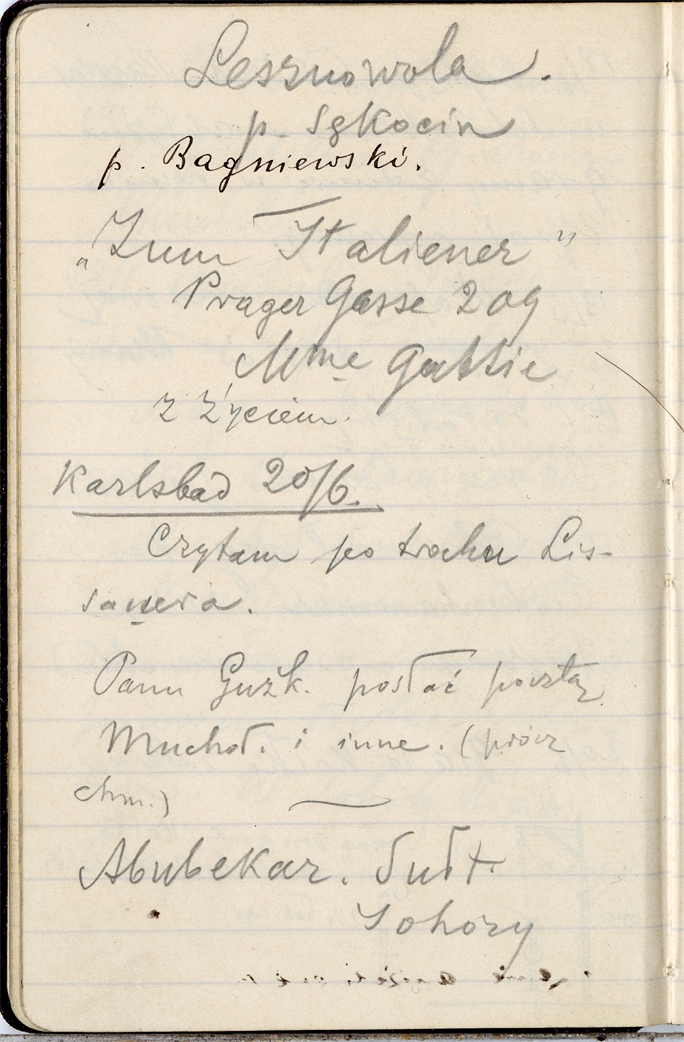 Lesznowola.
p. Sękocin
p. Bagniewski.
„Zum Italiener”
Prager Gasse 209
Mme
z Życiem.
Karlsbad 20/6.
Czytam po trochu Lis-
sauera.
Panu Guzk. posłać pocztą
Muchoł. i inne. (prócz
chm.)
Abubekar. Sułt.
Sohory